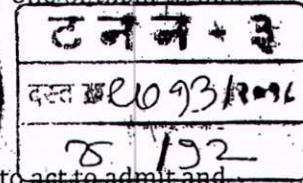 ट न न - ३
दस्त क्र ९७१३/२०१६
४ /१२
to act to admit and